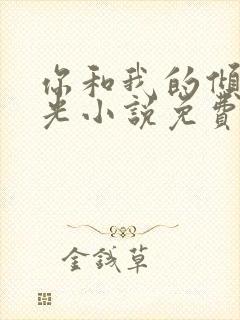 你和我的倾
光小说免费
金钱草